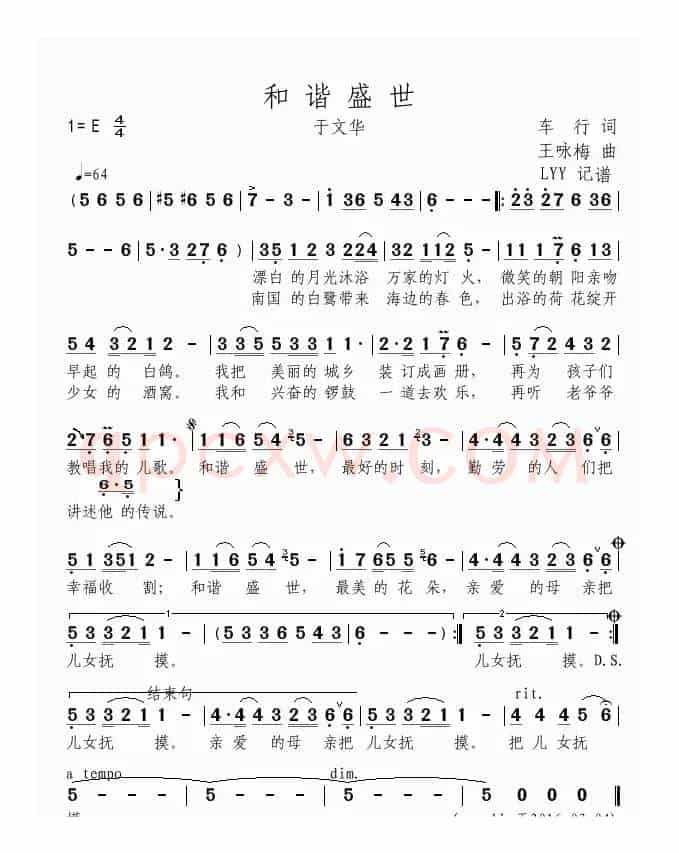 和谐盛世
1=E 4/4 于文华 车 行 词
王咏梅 曲
♩=64 LYY 记谱
(5 6 5 6 | #5 #6 5 6 | 7 - 3 - | 1 36 5 43 | 6 - - - |: 23 27 6 36 |
5 - - 6 | 5· 3 27 6 ) | 35 1 2 3 224 | 32 112 5 - | 1 1 1 7 6 13 |
漂白 的 月光沐浴 万家的灯 火, 微笑的朝 阳亲吻
南国 的 白鹭带来 海边的春 色, 出浴的荷 花绽开
5 4 3 2 1 2 - | 3 3 5 5 3 3 1 | 2· 2 1 7 6 - | 5 7 2 4 3 2 |
早起 的 白鸽。 我把 美丽的 城乡 装 订成画 册, 再为 孩子们
少女 的 酒窝。 我和 兴奋的 锣鼓 一 道去欢 乐, 再听 老爷爷
2· 7 6 5 1 1· | 1 1 6 5 4 5 - | 1· 7 6 5 2 - | 4· 4 4 3 2 3 6 6 |
教唱我的 儿歌。 和谐 盛 世, 最好的时 刻, 勤 劳 的人 们把
6· 5 }
讲述他 的传说。
5 1 3 5 1 2 - | 1 1 6 5 4 5 - | 1 7 6 5 5 6 - | 4· 4 4 3 2 3 6 6 |
幸福收 割; 和谐 盛 世, 最美 的 花 朵, 亲 爱 的母 亲把
1 2
5 3 3 2 1 1 - | (5 3 3 6 5 4 3 | 6 - - - ) :| 5 3 3 2 1 1 - :|
儿女抚 摸。 儿女抚 摸。D.S.
结束句 rit.
5 3 3 2 1 1 - | 4· 4 4 3 2 3 6 6 | 5 3 3 2 1 1 - | 4 4 4 5 5 6 |
儿女抚 摸。 亲 爱 的母 亲把 儿女抚 摸。 把 儿女 抚
a tempo dim.
5 - - - | 5 - - - | 5 - - - | 5 0 0 0 ‖
qpcxw.com